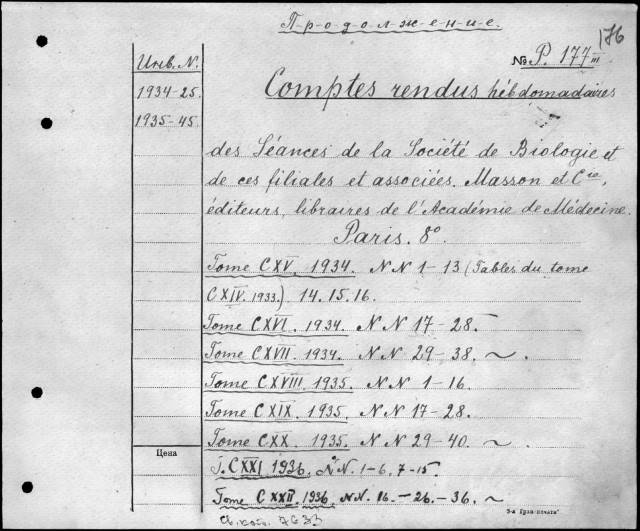 П-р-о-д-о-л-ж-е-н-и-е.
176
№ P. 177 III
Инв. N.
1934-25.
1935-45.
Comptes rendus hébdomadaires
des Séances de la Société de Biologie et
de ces filiales et associées. Masson et Cie,
éditeurs, libraires de l'Académie de Médecine.
Paris. 8°.
Tome CXV. 1934. N N 1-13 (Tables du tome
CXIV. 1933.) 14. 15. 16.
Tome CXVI. 1934. N N 17-28.
Tome CXVII. 1934. N N 29-38. ~.
Tome CXVIII. 1935. N N 1-16.
Tome CXIX. 1935. N N 17-28.
Tome CXX. 1935. N N 29-40. ~
Цена
T. CXXI 1936. N N. 1-6. 7-15.
Tome CXXII. 1936. N N. 16.-26.-36. ~